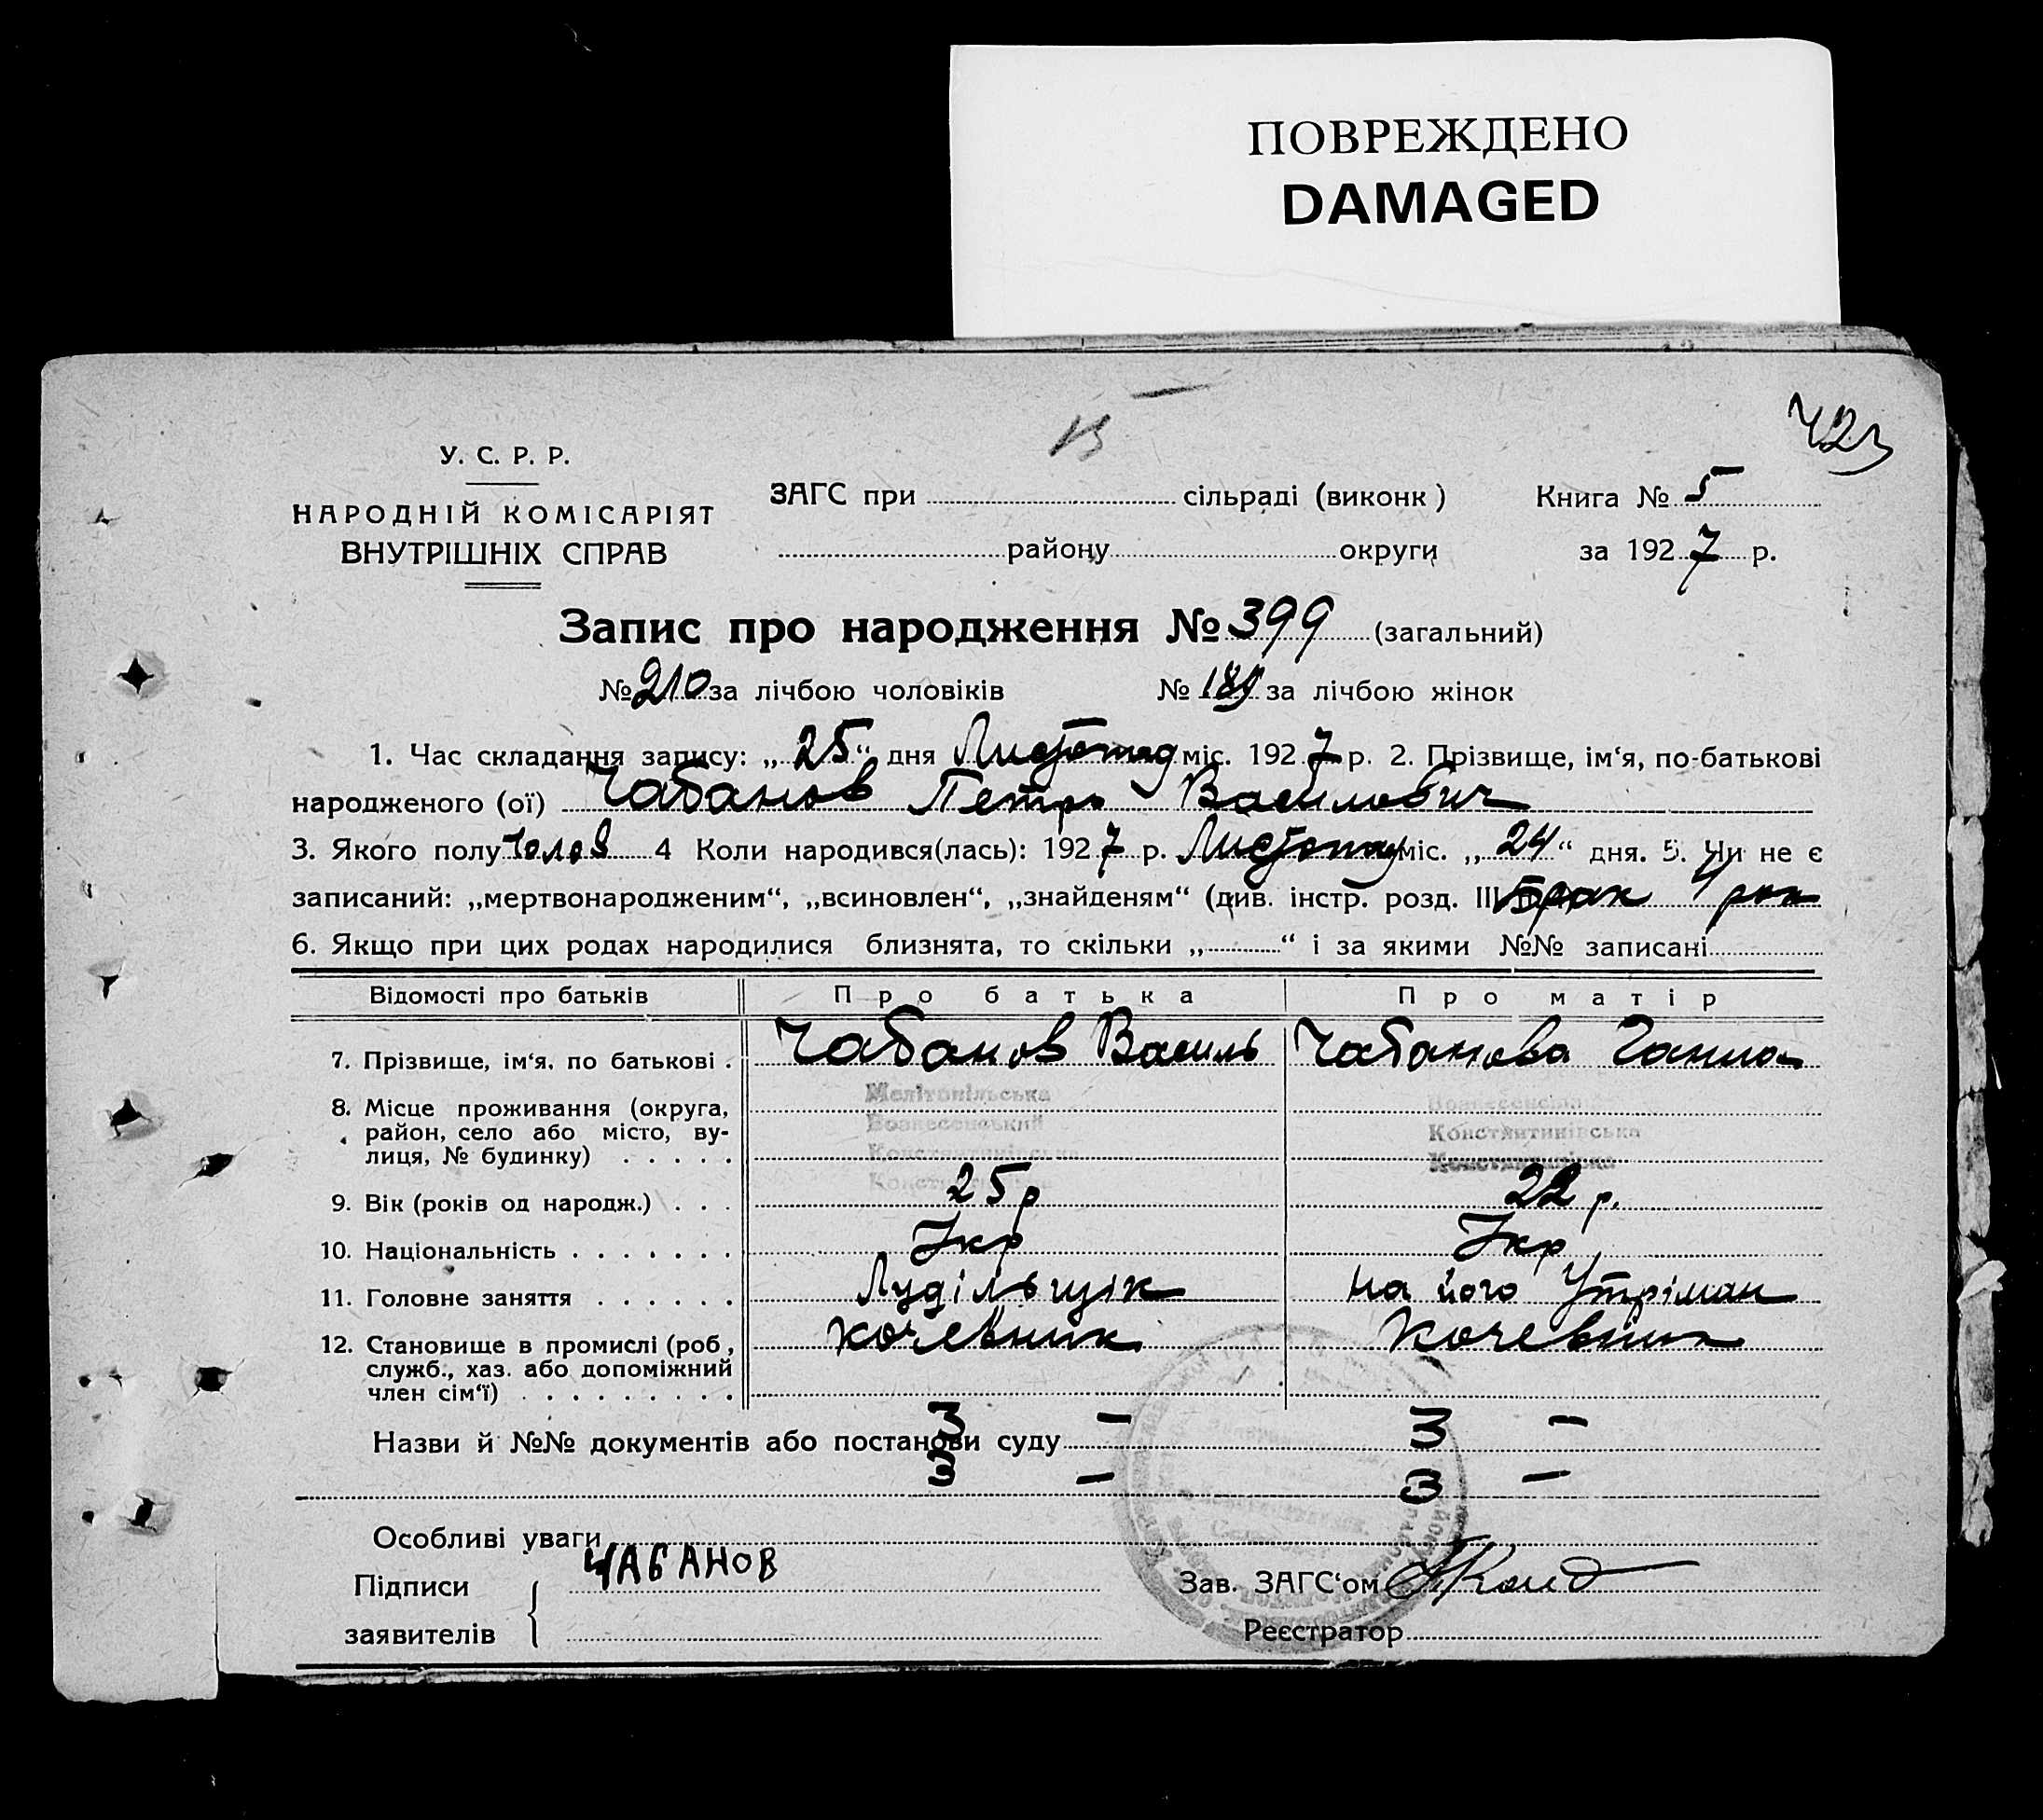 ПОВРЕЖДЕНО
DAMAGED
423
15
У. С. Р. Р.
НАРОДНІЙ КОМІСАРІЯТ
ВНУТРІШНІХ СПРАВ
ЗАГС при сільраді (виконк )
району округи
Книга № 5
за 1927 р.
Запис про народження № 399 (загальний)
№ 210 за лічбою чоловіків № 189 за лічбою жінок
1. Час складання запису: „ 25 “ дня Листопад міс. 1927 р. 2. Прізвище, ім‘я, по-батькові
народженого (ої) Чабанов Петро Василович
3. Якого полу Чолов 4 Коли народився(лась): 1927 р. Листопад міс. „ 24 “ дня. 5. Чи не є
записаний: „мертвонародженим“, „всиновлен“, „знайденям“ (див. інстр. розд. III
6. Якщо при цих родах народилися близнята, то скільки „ “ і за якими №№ записані
Відомості про батьків Про батька Про матір
7. Прізвище, ім‘я, по батькові . Чабанов Василь Чабанова Ганна
8. Місце проживання (округа,
район, село або місто, ву-
лиця, № будинку) . . . . .
Мелітопільська
Вознесенський
Константинівська
Константинівка
Вознесенський
Константинівська
Константинівка
9. Вік (років од народж.) . . . 25 р 22 р.
10. Національність . . . . . . . Укр Укр
11. Головне заняття . . . . . . Лудільщік на його Утріман
12. Становище в промислі (роб , кочевник Кочевник
служб., хаз. або допоміжний
член сім‘ї) . . . . . . . . .
3 — 3 —
Назви й №№ документів або постанови суду
3 — 3 —
Особливі уваги
Підписи ЧАБАНОВ Зав. ЗАГС‘ом
заявителів Реєстратор